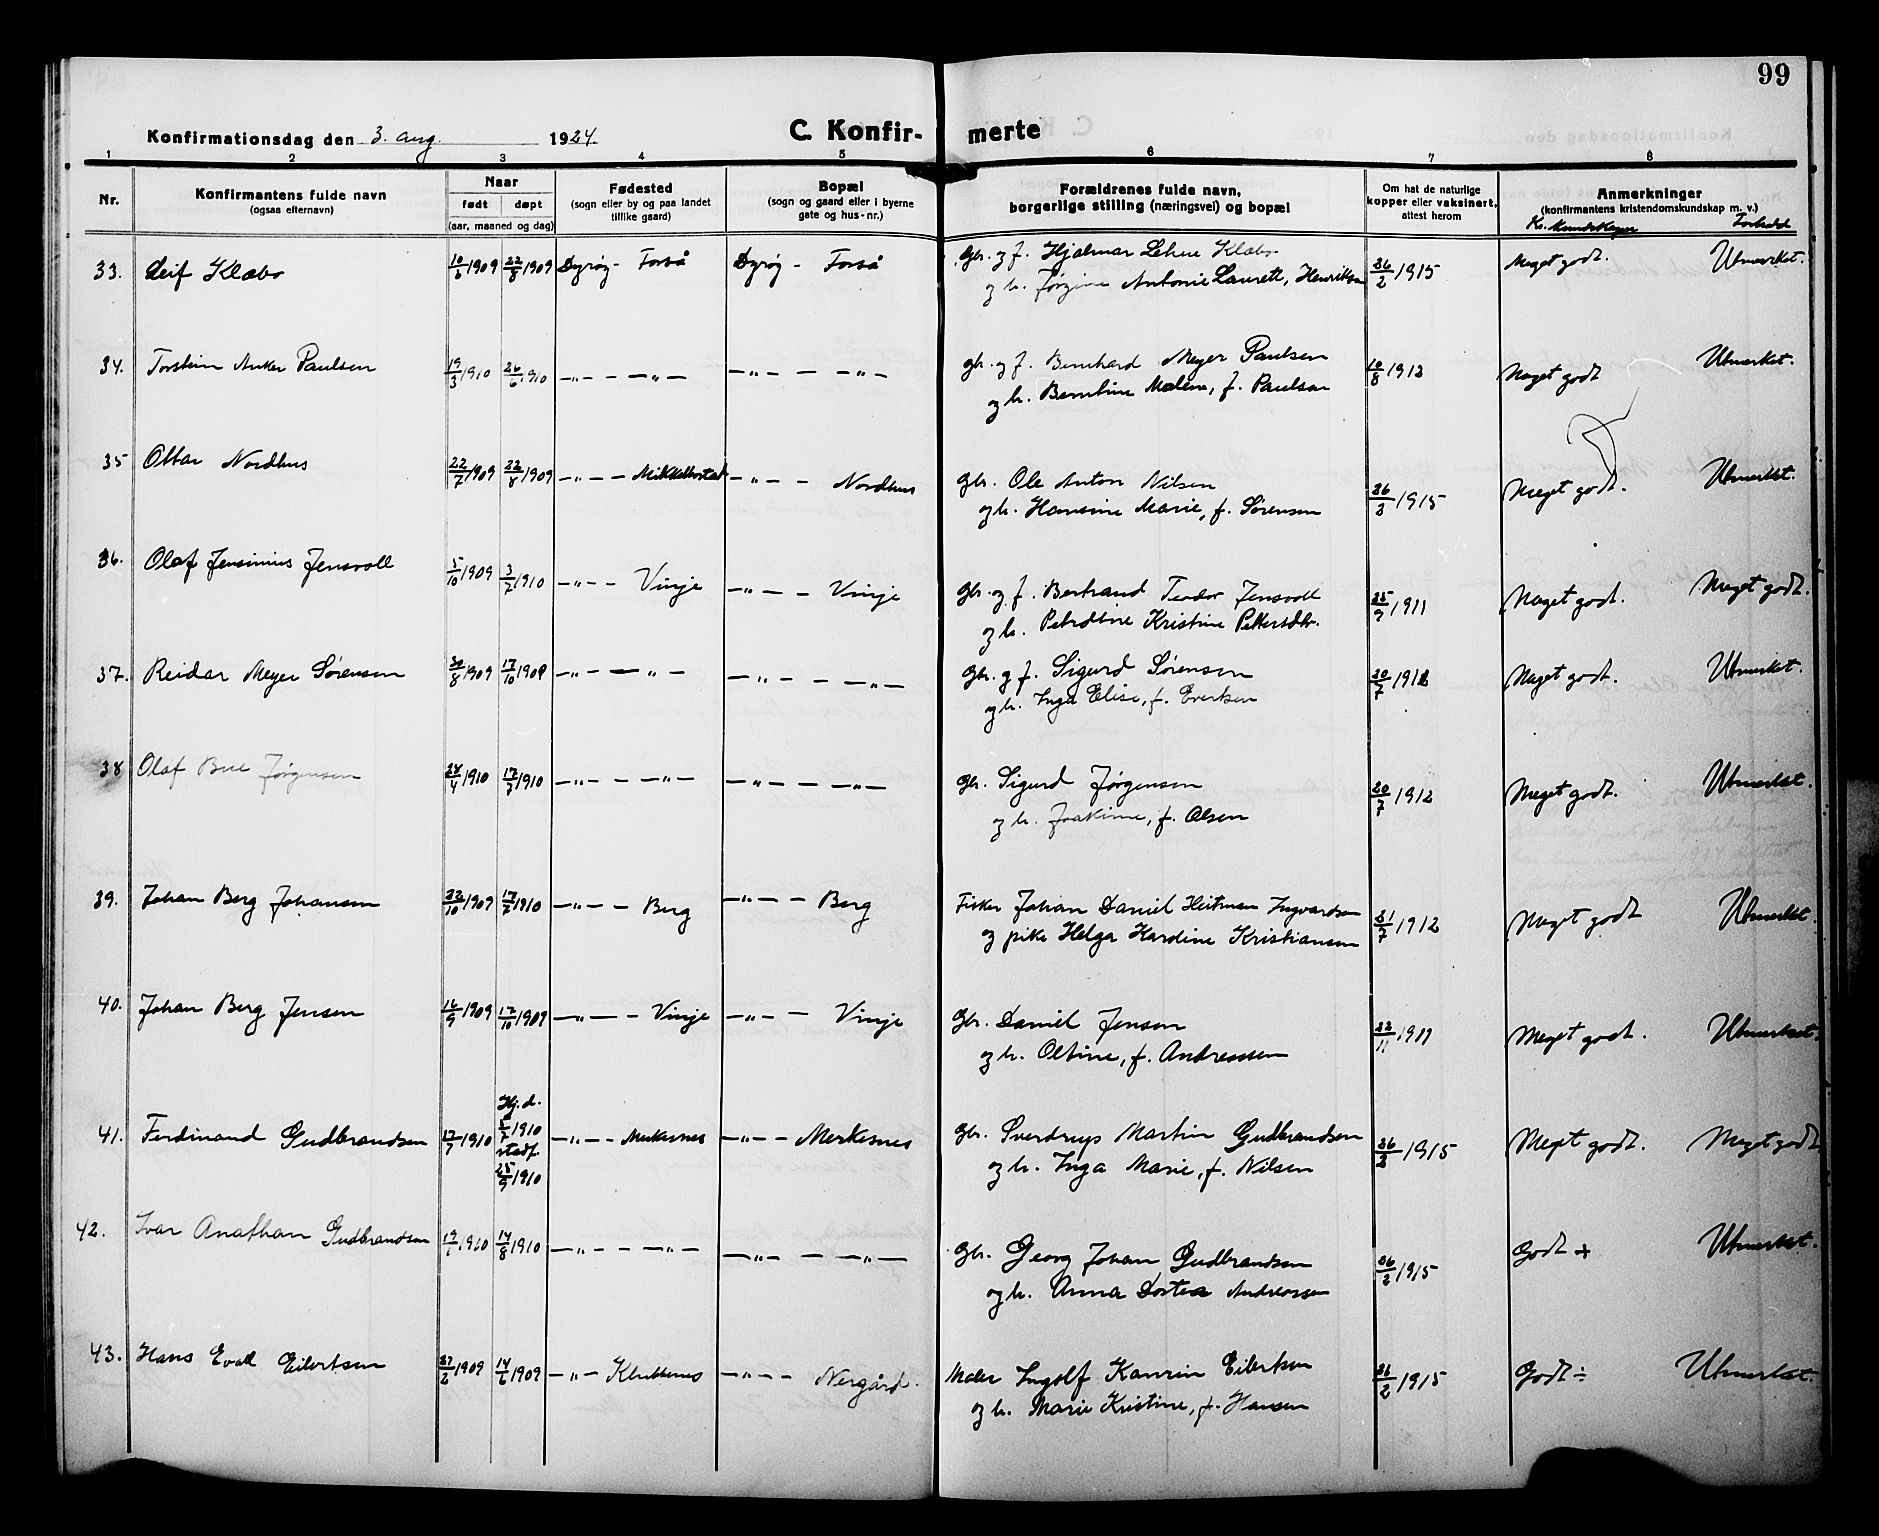 99
Konfirmationsdag den 3. aug. 1924. C. Konfir- merte
1 2 3 4 5 6 7 8
Nr. Konfirmantens fulde navn (ogsaa efternavn) Naar født døpt (aar, maaned og dag) Fødested (sogn eller by og paa landet tillike gaard) Bopæl (sogn og gaard eller i byerne gate og hus-nr.) Forældrenes fulde navn, borgerlige stilling (næringsvei) og bopæl Om hat de naturlige kopper eller vaksinert, attest herom Anmerkninger (konfirmantens kristendomskundskap m. v.)
Kr. kundskaper Forhold
33. Leif Klæbo 10/6 1909 22/8 1909 Dyrøy - Forså Dyrøy - Forså Gbr. og f. Hjalmar Klæbo 26/2 1915 Meget godt. Utmerket.
og h. Jørgine Antonie Laurett, Henriksen
34. Torstein Anker Paulsen 19/3 1910 26/6 1910 —„— —„— —„— —„— Gbr. og f. Bernhard Meyer Paulsen 10/8 1912 Meget godt Utmerket.
og h. Berntine Malene, f. Paulsen
35 Ottar Nordhus 22/7 1909 22/8 1909 —„— Mikkelbostad —„— Nordhus Gbr. Ole Anton Nilsen 26/2 1915 Meget godt. Utmerket.
og h. Hansine Marie, f. Sørensen
36. Olaf Jensinius Jensvoll 5/10 1909 3/7 1910 —„— Vinje —„— Vinje Gbr. og f. Bertrand Teodor Jensvoll 25/9 1911 Meget godt. Meget godt.
og h. Kristine Pettersdtr.
37. Reidar Meyer Sørensen 30/8 1909 17/10 1909 —„— —„— —„— —„— Gbr. og f. Sigurd Sørensen 20/7 1912 Meget godt. Utmerket.
og h. Inga Elise, f. Evertsen
38 Olaf Bue Jørgensen 28/4 1910 17/7 1910 —„— —„— —„— —„— Gbr. Sigurd Jørgensen 20/7 1912 Meget godt. Utmerket.
og h. Joakime, f. Olsen
39. Johan Berg Johansen 22/10 1909 17/7 1910 —„— Berg —„— Berg Fisker Johan Daniel Heitman Ingvardsen 31/7 1912 Meget godt Utmerket.
og pike Helga Hardine Kristiansen
40. Johan Berg Jensen 16/9 1909 17/10 1909 —„— Vinje —„— Vinje Gbr. Daniel Jensen 22/11 1911 Meget godt. Utmerket.
og h. Oltine, f. Andreassen
41. Ferdinand Gudbrandsen 17/7 1910 Hj.d. 1910 stadf 25/9 1910 —„— Merkesnes —„— Merkesnes Gbr. Sverdrup Martin Gudbrandsen 26/2 1915 Meget godt. Meget godt
og h. Inga Marie, f. Nilsen
42. Ivar Anathan Gudbrandsen 19/1 1910 14/8 1910 —„— —„— —„— —„— Gbr. Georg Johan Gudbrandsen 26/2 1915 Godt + Utmerket.
og h. Anna Dortea Andreassen
43. Hans Evall Eilertsen 27/2 1909 14/6 1909 —„— Klubbenes —„— Nergård. Maler Ingolf Kanrin Eilertsen 26/2 1915 Godt ÷ Utmerket.
og h. Marie Kristine, f. Hansen